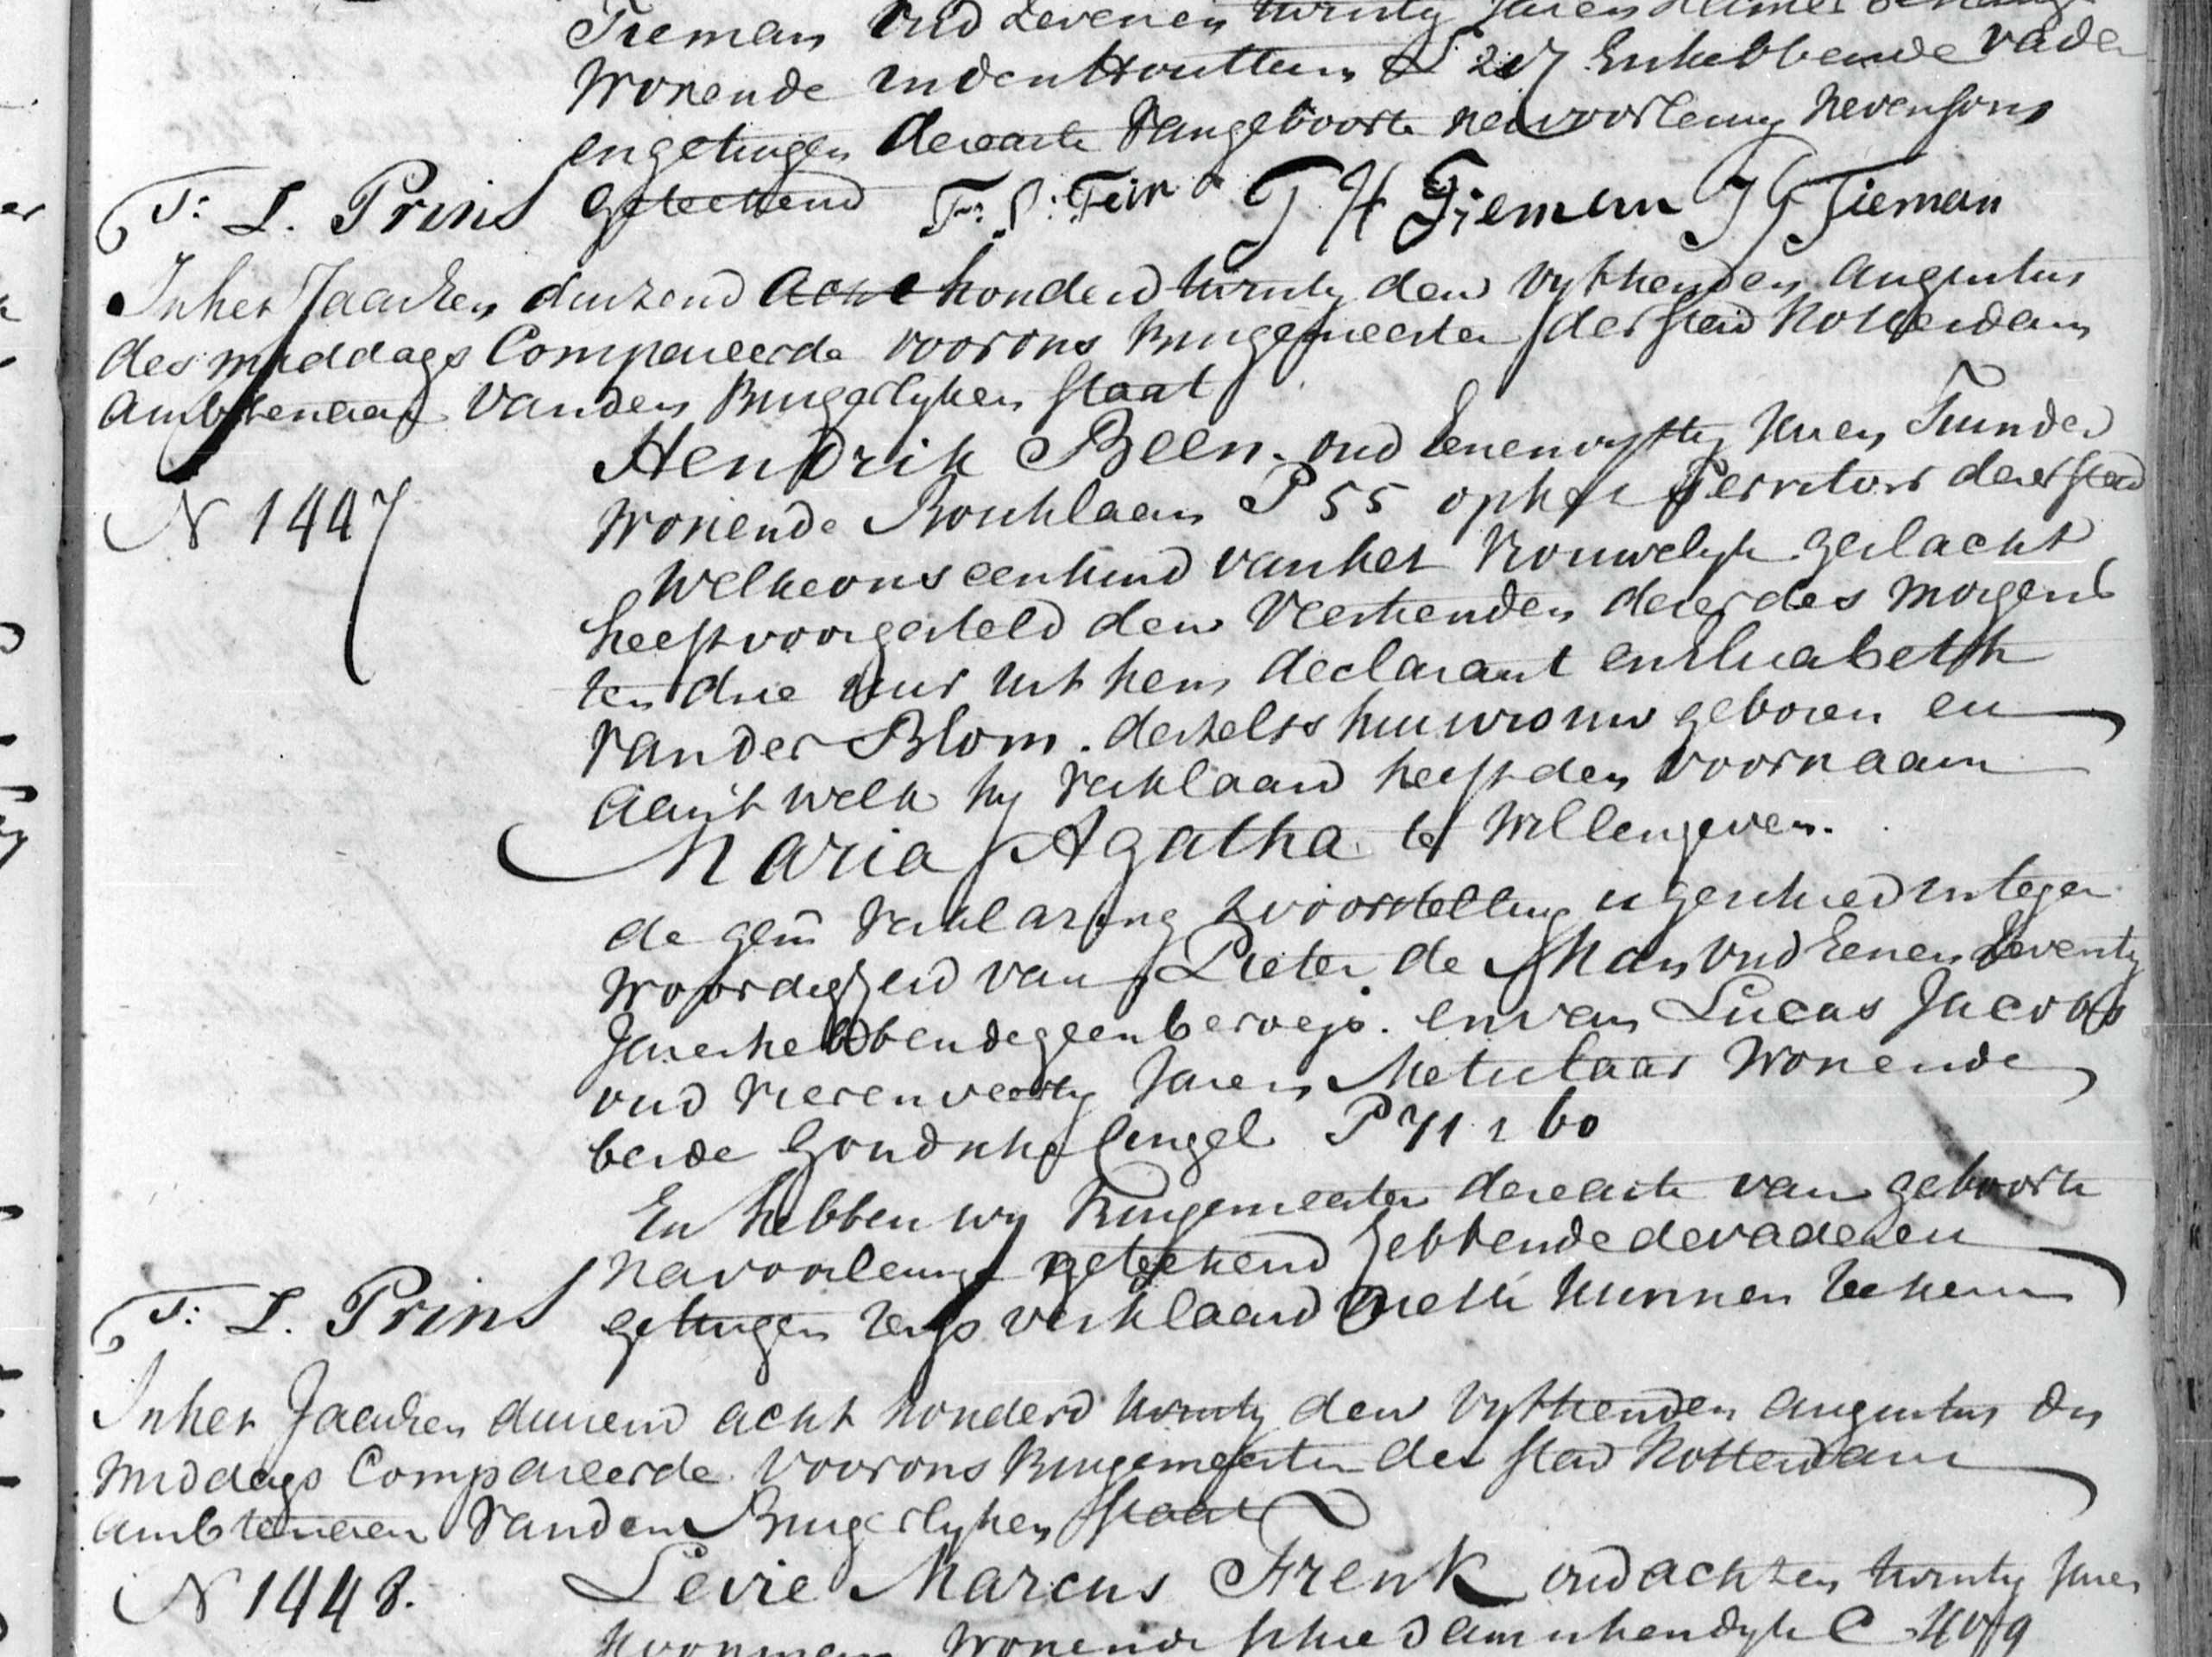 Tieman Oud Zevenen twintig Jaren
Wonende inden Houttuin L 217 Enhebbende vader
engetuigen dereacte vangeboorte navoorlezing nevensons
F: L. Prins geteekend F: P: Tein T H Tieman J G Tieman
Inhet Jaardien duizend acht honderd twintig den vyfthienden Augustus
des middags Compareerde voorons Burgemeester der stad Rotterdam
Ambtenaar vanden Burgerlyken staat
N 1447
Hendrik Been. oud Eenenvyftig Jaren Tuinder
Wonende Boschlaan P 55 ophet Territoir dezerstad
Welkeons eenkind vanhet Vrouwelyk geslacht
heeftvoorgesteld den Veertienden dezer des morgens
ten drie uur uit hem declarant enElizabeth
vander Blom. deszelfs huisvrouw geboren en
aan't welk hy verklaard heeft den voornaam
Maria Agatha te Willengeven.
de gem verklaring & voorstelling is geschied integen
Woordigheid van Pieter de Man Oud Eenen Zeventig
Jaren hebbendegeenberoep. envan Lucas Jacobs
oud vierenveertig Jaren Metselaar Wonende
beide Goudsche Cingel P 71 & 60
En hebben wy Burgemeester dereacte van geboorte
navoorlezing geteekend hebbende devaderen
F: L. Prins getuigen verklaard niette kunnen teekenen
Inhet Jaardien duizend acht honderd twintig den vyfthienden augustus des
Middags Compareerde voorons Burgemeester der stad Rotterdam
ambtenaren vanden Burgerlyken staat
N 1448.
Levie Marcus Frenk oud achten twintig Jaren
Koopman Wonende schiedamschendyk C